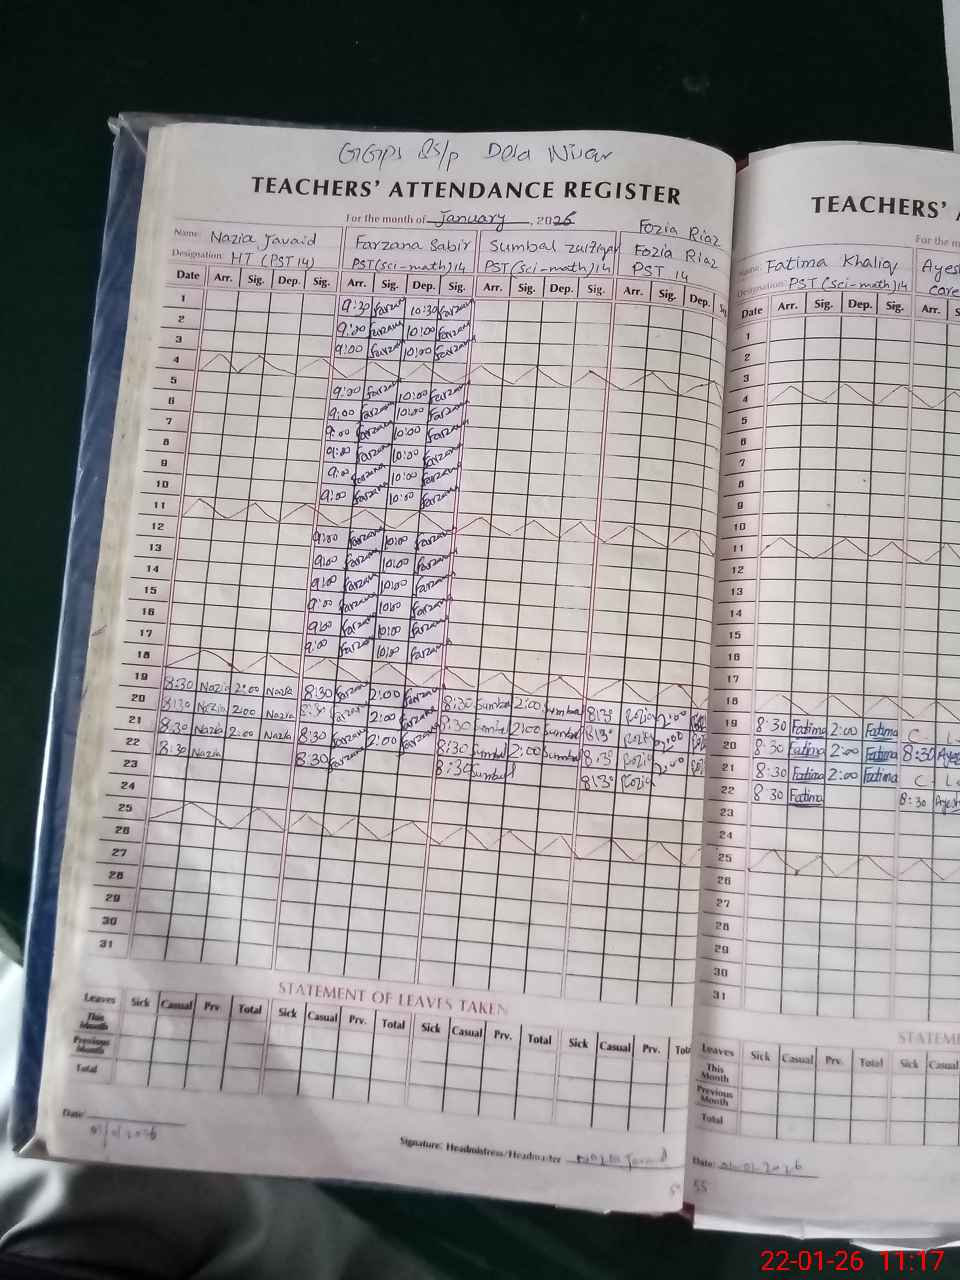 GGPS
TEACHERS' ATTENDANCE REGISTER
For the month of January, 2026
Name: Nazia Javaid Farzana Sabir Sumbal Fozia Riaz
Fozia Riaz
Designation: HT (PST 14) PST(sci-math)14 PST(sci-math)14 PST 14
Date Arr. Sig. Dep. Sig. Arr. Sig. Dep. Sig. Arr. Sig. Dep. Sig. Arr. Sig. Dep.
1 9:30 Farzana 10:30 Farzana
2 9:00 Farzana 10:00 Farzana
3 9:00 Farzana 10:00 Farzana
4
5 9:00 Farzana 10:00 Farzana
6 9:00 Farzana 10:00 Farzana
7 9:00 Farzana 10:00 Farzana
8 9:00 Farzana 10:00 Farzana
9 9:00 Farzana 10:00 Farzana
10 9:00 Farzana 10:00 Farzana
11
12 9:00 Farzana 10:00 Farzana
13 9:00 Farzana 10:00 Farzana
14 9:00 Farzana 10:00 Farzana
15 9:00 Farzana 10:00 Farzana
16 9:00 Farzana 10:00 Farzana
17 9:00 Farzana 10:00 Farzana
18
19 8:30 Nazia 2:00 Nazia 8:30 Farzana 2:00 Farzana 8:30 Sumbal 2:00 Sumbal 8:30 Fozia 2:00
20 8:30 Nazia 2:00 Nazia 8:30 Farzana 2:00 Farzana 8:30 Sumbal 2:00 Sumbal 8:30 Fozia 2:00
21 8:30 Nazia 2:00 Nazia 8:30 Farzana 2:00 Farzana 8:30 Sumbal 2:00 Sumbal 8:30 Fozia 2:00
22 8:30 Nazia 8:30 Farzana 8:30 Sumbal 8:30 Fozia
23
24
25
26
27
28
29
30
31
STATEMENT OF LEAVES TAKEN
Leaves Sick Casual Prv. Total Sick Casual Prv. Total Sick Casual Prv. Total Sick Casual Prv.
This Month
Previous Month
Total
Date:
Signature: Headmistress/Headmaster Nazia Javaid
TEACHERS'
For the
Name: Fatima Khaliq
Designation: PST (sci-math)14
Date Arr. Sig. Dep. Sig. Arr.
1
2
3
4
5
6
7
8
9
10
11
12
13
14
15
16
17
18
19 8:30 Fatima 2:00 Fatima C. L
20 8:30 Fatima 2:00 Fatima 8:30
21 8:30 Fatima 2:00 Fatima C. L
22 8:30 Fatima 8:30
23
24
25
26
27
28
29
30
31
Leaves Sick Casual Prv. Total Sick Casual
This Month
Previous Month
Total
Date:
55
22-01-26 11:17